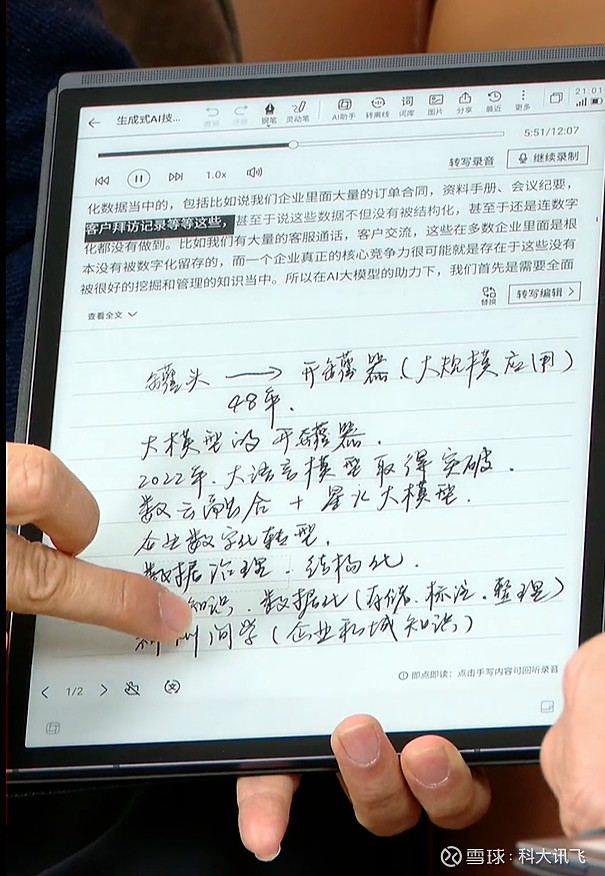 生成式AI技...
钢笔 灵动笔 AI助手 转离线 词库 图片 分享 最近 更多
21:01
5:51/12:07
1.0x 转写录音 继续录制
化数据当中的，包括比如说我们企业里面大量的订单合同，资料手册、会议纪要，
客户拜访记录等等这些，甚至于说这些数据不但没有被结构化，甚至于还是连数字
化都没有做到。比如我们有大量的客服通话，客户交流，这些在多数企业里面是根
本没有被数字化留存的，而一个企业真正的核心竞争力很可能就是存在于这些没有
被很好的挖掘和管理的知识当中。所以在AI大模型的助力下，我们首先是需要全面
查看全文 替换 转写编辑
罐头 → 开罐器（大规模应用）
48年.
大模型的开罐器.
2022年.大语言模型取得突破.
数云融合 + 星火大模型.
企业数字化转型.
数据治理.结构化.
知识.数据化（存储.标注.整理）
问学（企业私域知识）
1/2
即点即读：点击手写内容可回听录音
雪球：科大讯飞